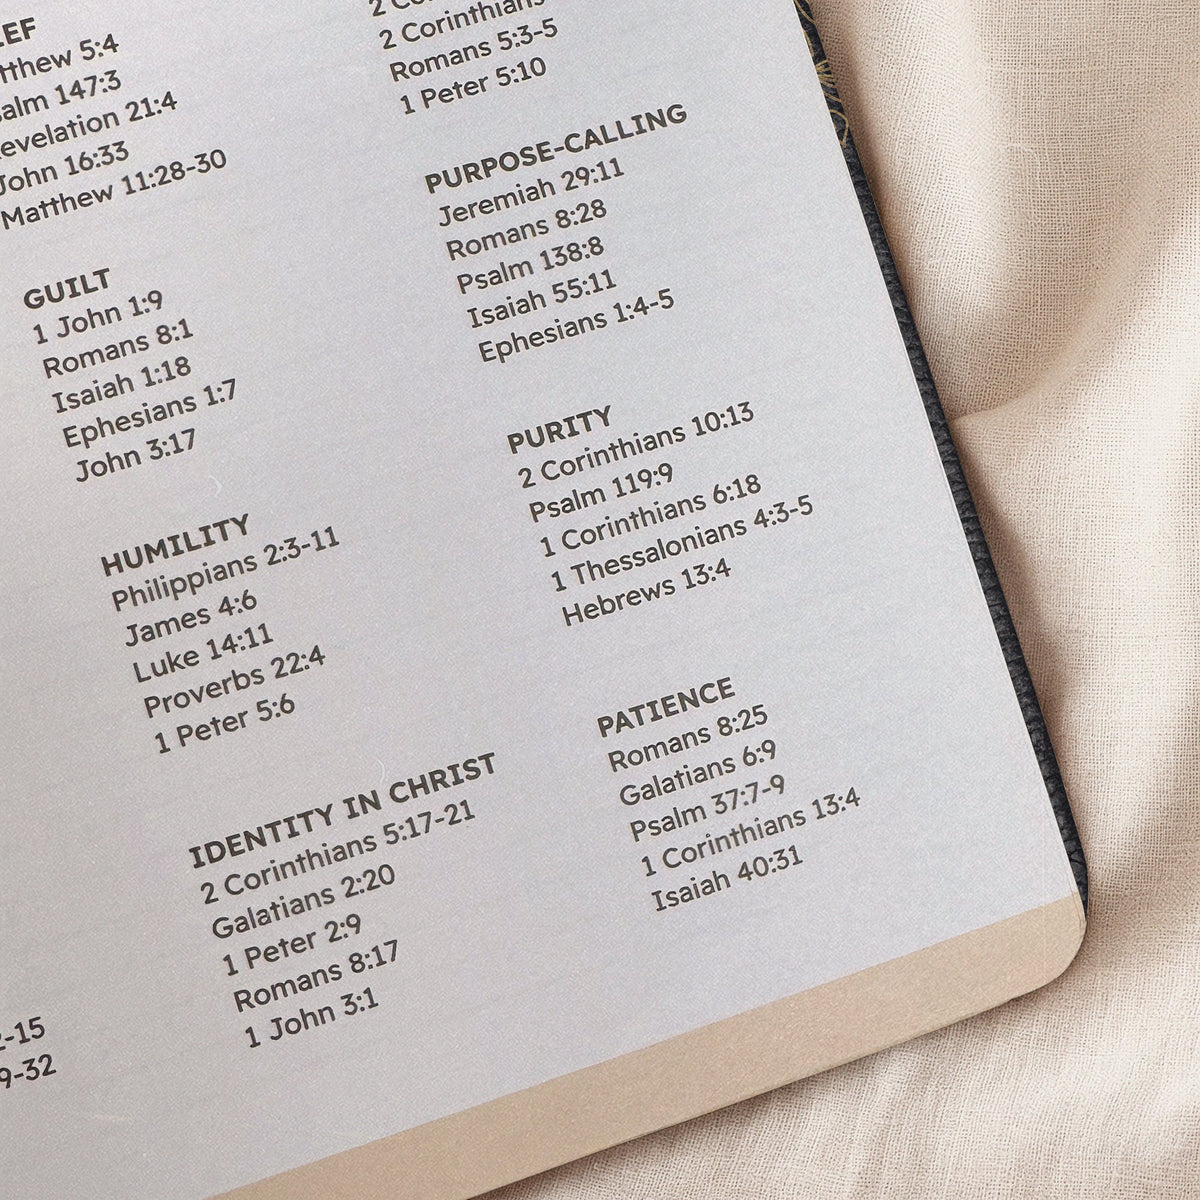 Matthew 11:28-30
GUILT
1 John 1:9
Romans 8:1
Isaiah 1:18
Ephesians 1:7
John 3:17
HUMILITY
Philippians 2:3-11
James 4:6
Luke 14:11
Proverbs 22:4
1 Peter 5:6
IDENTITY IN CHRIST
2 Corinthians 5:17-21
Galatians 2:20
1 Peter 2:9
Romans 8:17
1 John 3:1
2 Corinthians
Romans 5:3-5
1 Peter 5:10
PURPOSE-CALLING
Jeremiah 29:11
Romans 8:28
Psalm 138:8
Isaiah 55:11
Ephesians 1:4-5
PURITY
2 Corinthians 10:13
Psalm 119:9
1 Corinthians 6:18
1 Thessalonians 4:3-5
Hebrews 13:4
PATIENCE
Romans 8:25
Galatians 6:9
Psalm 37:7-9
1 Corinthians 13:4
Isaiah 40:31
5:4
147:3
21:4
John 16:33
-15
9-32